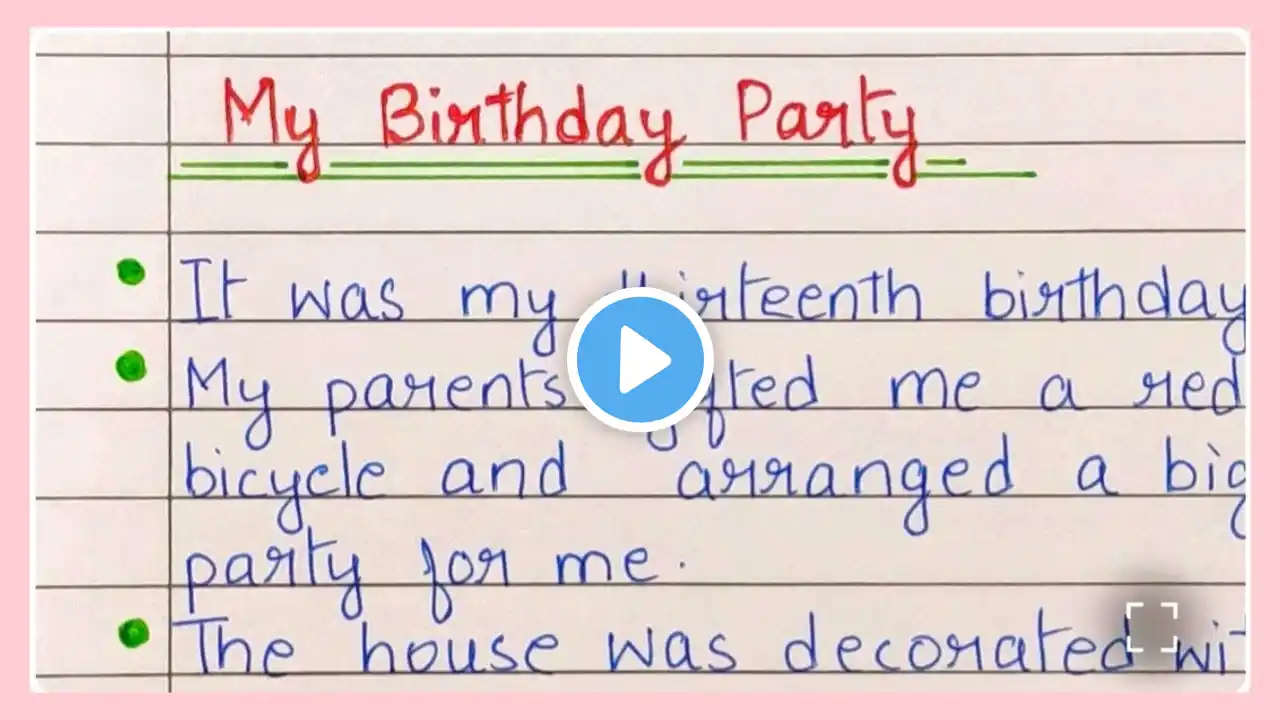 My Birthday Party
It was my thirteenth birthday
My parents gifted me a red
bicycle and arranged a big
party for me.
The house was decorated